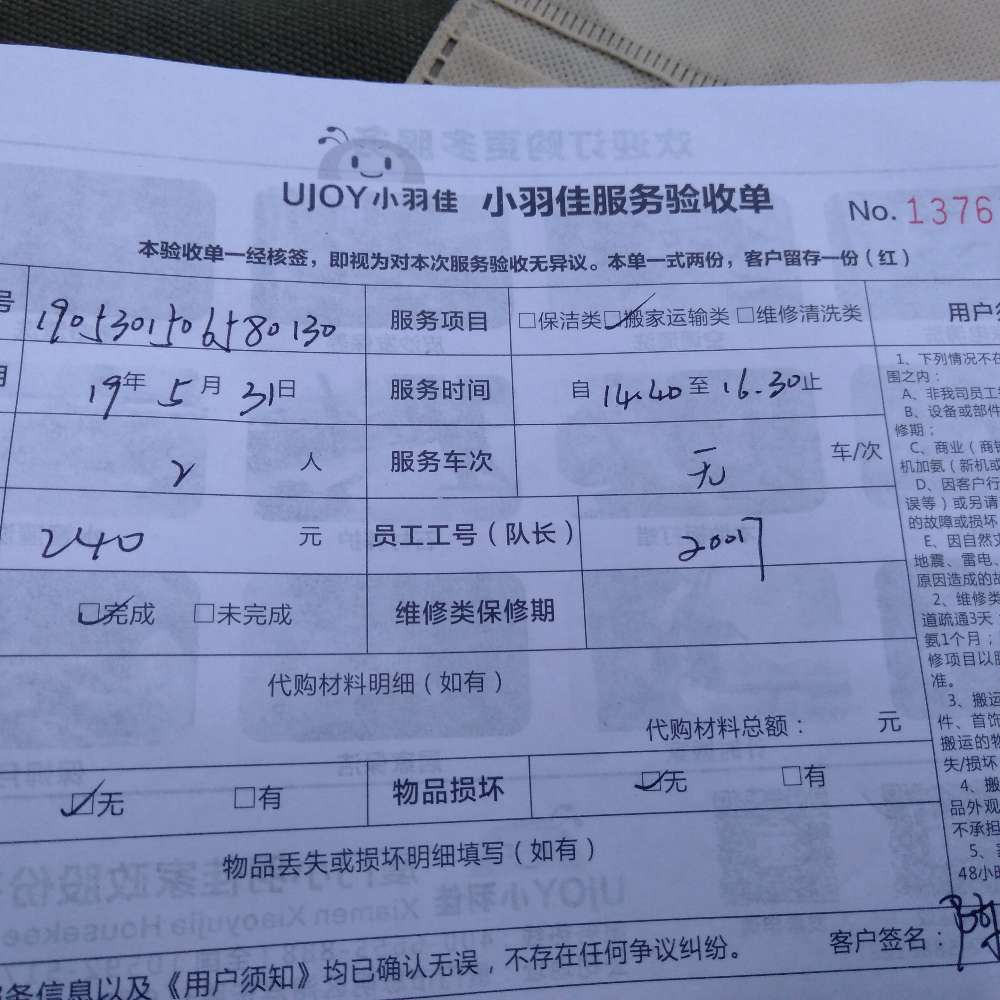 UJOY小羽佳 小羽佳服务验收单 No. 1376
本验收单一经核签，即视为对本次服务验收无异议。本单一式两份，客户留存一份（红）
号 1905301506580130 服务项目 □保洁类 □搬家运输类 □维修清洗类 用户
期 19年 5月 31日 服务时间 自 14.40 至 16.30 止
2 人 服务车次 无 车/次
240 元 员工工号（队长） 20017
□完成 □未完成 维修类保修期
代购材料明细（如有）
代购材料总额： 元
□无 □有 物品损坏 □无 □有
物品丢失或损坏明细填写（如有）
务信息以及《用户须知》均已确认无误，不存在任何争议纠纷。 客户签名：
1、下列情况不在
围之内：
A、非我司员工
B、设备或部件
修期；
C、商业（商
机加氨（新机或
D、因客户行
误等）或另请
的故障或损坏
E、因自然
地震、雷电、
原因造成的故
2、维修类
道疏通3天
氨1个月；
修项目以
准。
3、搬运
件、首饰
搬运的物
失/损坏
4、搬
品外观
不承担
5、
48小时